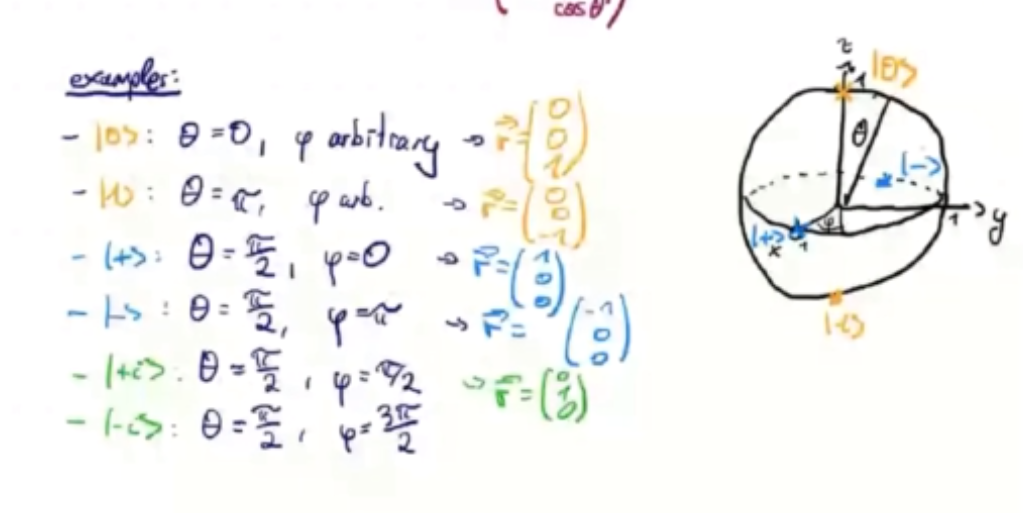 cos θ
examples:
- |0>: θ = 0, φ arbitrary → r⃗ = (0 0 1)
- |1>: θ = π, φ arb. → r⃗ = (0 0 -1)
- |+>: θ = π/2, φ = 0 → r⃗ = (1 0 0)
- |->: θ = π/2, φ = π → r⃗ = (-1 0 0)
- |+i>: θ = π/2, φ = π/2 → r⃗ = (0 1 0)
- |-i>: θ = π/2, φ = 3π/2
z
1
|0>
θ
|->
|+>
x
1
φ
1
y
|1>